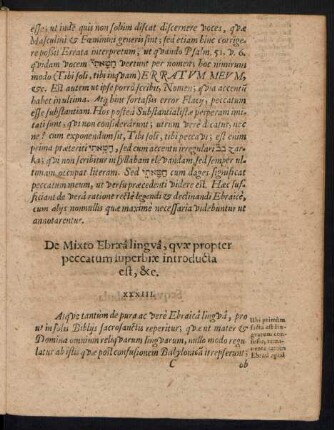 esse, ut inde quis non solùm discat discernere voces, quæ
Masculini & Fœminini generis sint; sed etiam hinc corrige-
re possit Errata interpretum, ut quando Psalm. 51. v. 6.
quidam vocem חטאתי vertunt per nomen: hoc nimirum
modo (Tibi soli, tibi inquam) ERRATUM MEUM,
&c. Est autem ut ipse porrò scribit, Nomen; quia accentũ
habet in ultima. Atq; hinc fortassis error Flacy, peccatum
esse substantiam. Hos postea Substantialistæ perperam imi-
tati sunt, qui non consideràrunt; utrum verè dicatur, nec-
ne? cum exponendum sit, Tibi soli, tibi peccavi; est enim
prima præteriti חטאתי, sed cum accentu irregulari
zarka, qui non scribitur in syllabam elevandam sed semper ul-
timam occupat literam. Sed חטאתי cum dages significat
peccatum meum, ut versu præcedenti videre est. Hæc suf-
ficiant de verâ ratione rectè legendi & declinandi Ebraicè,
cum alys nonnullis quæ maximè necessaria videbuntur ut
annotarentur.
De Mixto Ebræâ linguâ, qvæ propter
peccatum superbiæ introducta
est, &c.
XXXIII.
Atque tantùm de pura ac verè Ebraicâ linguâ, pro
ut in solis Biblijs sacrosanctis reperitur, quæ ut mater &
Domina omnium reliquarum linguarum, nullo modo regu-
latur ab istis quæ post confusionem Babylonicã irrepserunt;
Ubi primùm
C
ob